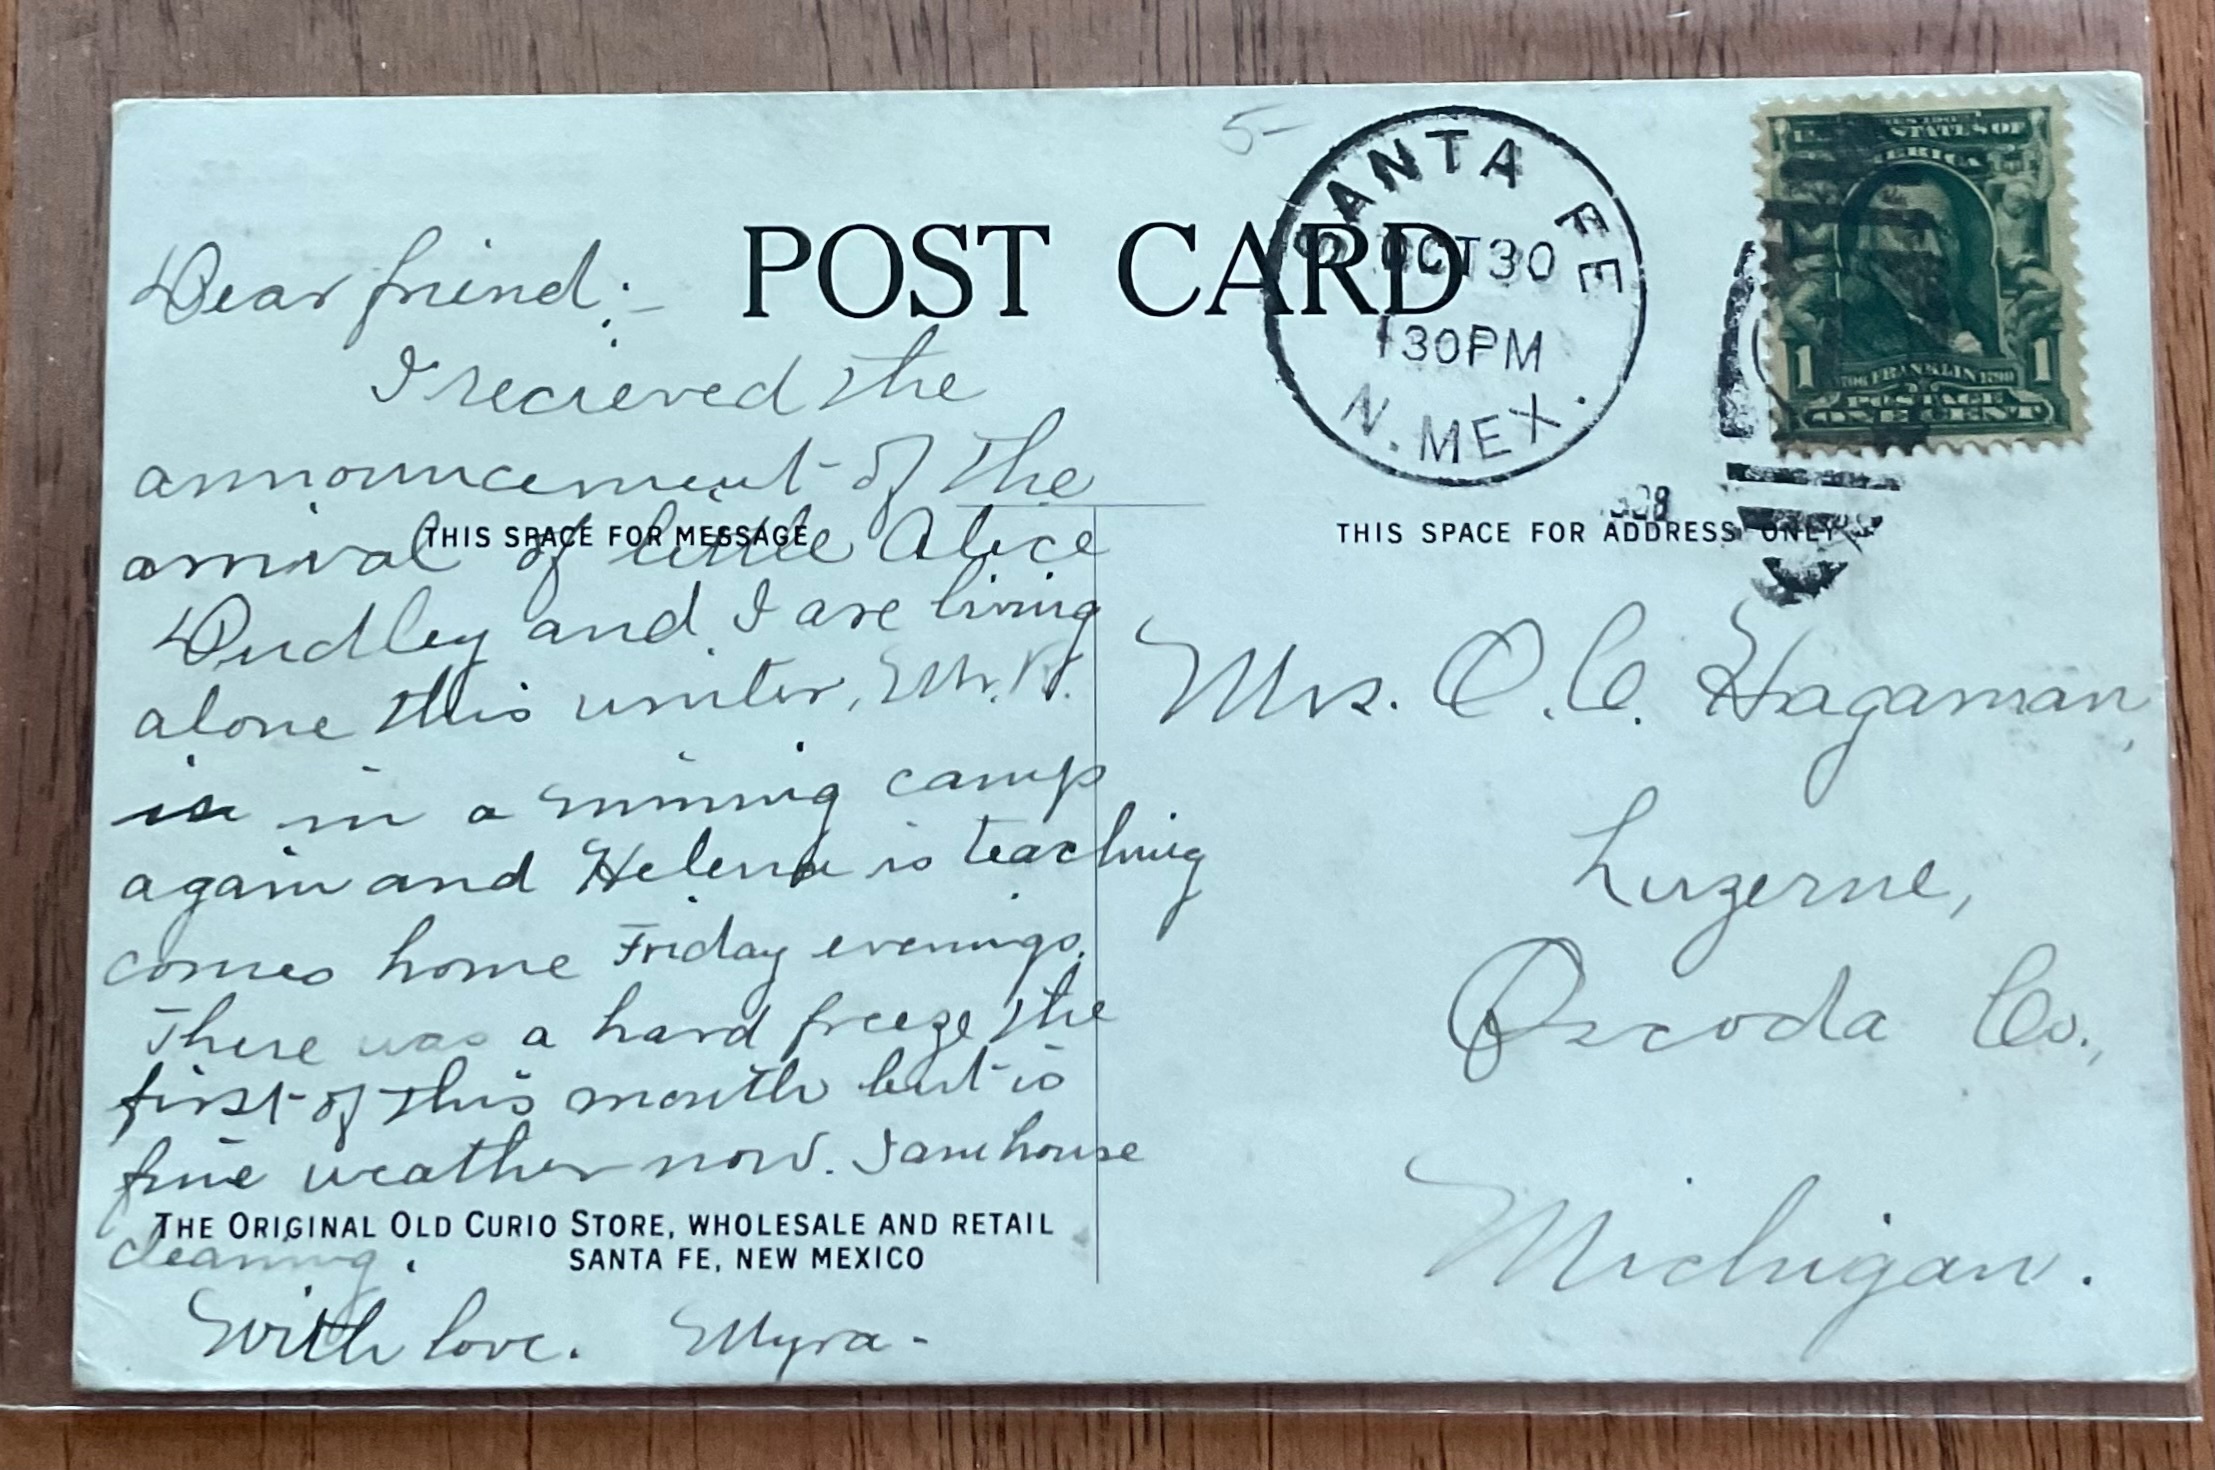 5-
POST CARD
SANTA FE
OCT 30
1 30 PM
N. MEX.
UNITED STATES OF
AMERICA
1 1706 FRANKLIN 1790 1
POSTAGE
ONE CENT
Dear friend:-
I recieved the
announcement of the
arrival of little Alice
Dudley and I are living
alone this winter, Mr. R.
is in a mining camp
again and Helena is teaching
comes home Friday evenings.
There was a hard freeze the
first of this month but is
fine weather now. I am house
cleaning.
With love. Myra-
THIS SPACE FOR MESSAGE
THE ORIGINAL OLD CURIO STORE, WHOLESALE AND RETAIL
SANTA FE, NEW MEXICO
THIS SPACE FOR ADDRESS ONLY
Mrs. O. C. Hagaman,
Luzerne,
Oscoda Co.,
Michigan.